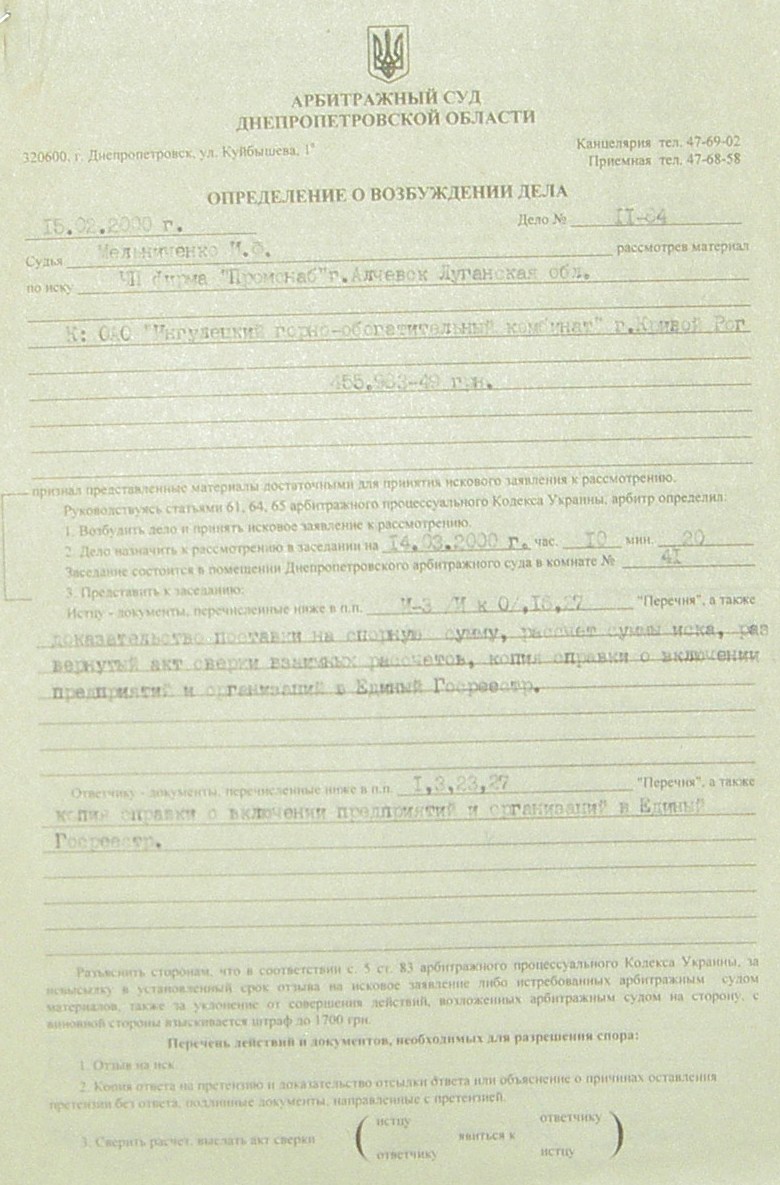 АРБИТРАЖНЫЙ СУД
ДНЕПРОПЕТРОВСКОЙ ОБЛАСТИ
320600, г. Днепропетровск, ул. Куйбышева, 1ª
Канцелярия тел. 47-69-02
Приемная тел. 47-68-58
ОПРЕДЕЛЕНИЕ О ВОЗБУЖДЕНИИ ДЕЛА
15.02.2000 г. Дело № II-64
Судья Мельниченко И.Ф. рассмотрев материал
по иску ЧП фирма "Промснаб"г.Алчевск Луганская обл.
К: ОАО "Ингулецкий горно-обогатительный комбинат" г.Кривой Рог
грн.
признал представленные материалы достаточными для принятия искового заявления к рассмотрению.
Руководствуясь статьями 61, 64, 65 арбитражного процессуального Кодекса Украины, арбитр определил:
1. Возбудить дело и принять исковое заявление к рассмотрению.
2. Дело назначить к рассмотрению в заседании на 14.03.2000 г. час. 10 мин. 20
Заседание состоится в помещении Днепропетровского арбитражного суда в комнате № 41
3. Представить к заседанию:
Истцу - документы, перечисленные ниже в п.п. И-3 /И к О/,16,27 "Перечня", а также
доказательство поставки на спорную сумму, рассчет суммы иска, раз
вернутый акт сверки взаимных рассчетов, копия справки о включении
предприятий и организаций в Единый Госреестр.
Ответчику - документы, перечисленные ниже в п.п. I,3,23,27 "Перечня", а также
копия справки о включении предприятий и организаций в Единый
Госреестр.
Разъяснить сторонам, что в соответствии с. 5 ст. 83 арбитражного процессуального Кодекса Украины, за
невысылку в установленный срок отзыва на исковое заявление либо истребованных арбитражным судом
материалов, также за уклонение от совершения действий, возложенных арбитражным судом на сторону, с
виновной стороны взыскивается штраф до 1700 грн.
Перечень действий и документов, необходимых для разрешения спора:
1. Отзыв на иск.
2. Копия ответа на претензию и доказательство отсылки ответа или объяснение о причинах оставления
претензии без ответа, подлинные документы, направленные с претензией.
3. Сверить расчет, выслать акт сверки ( истцу явиться к ответчику )
ответчику истцу